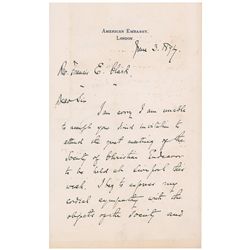 American Embassy.
London
June 3. 1897.
Rev. Francis E. Clark
Dear Sir
I am sorry I am unable
to accept your kind invitation to
attend the great meeting of the
Society of Christian Endeavor
to be held at Liverpool this
week. I beg to express my
cordial sympathy with the
objects of the Society and